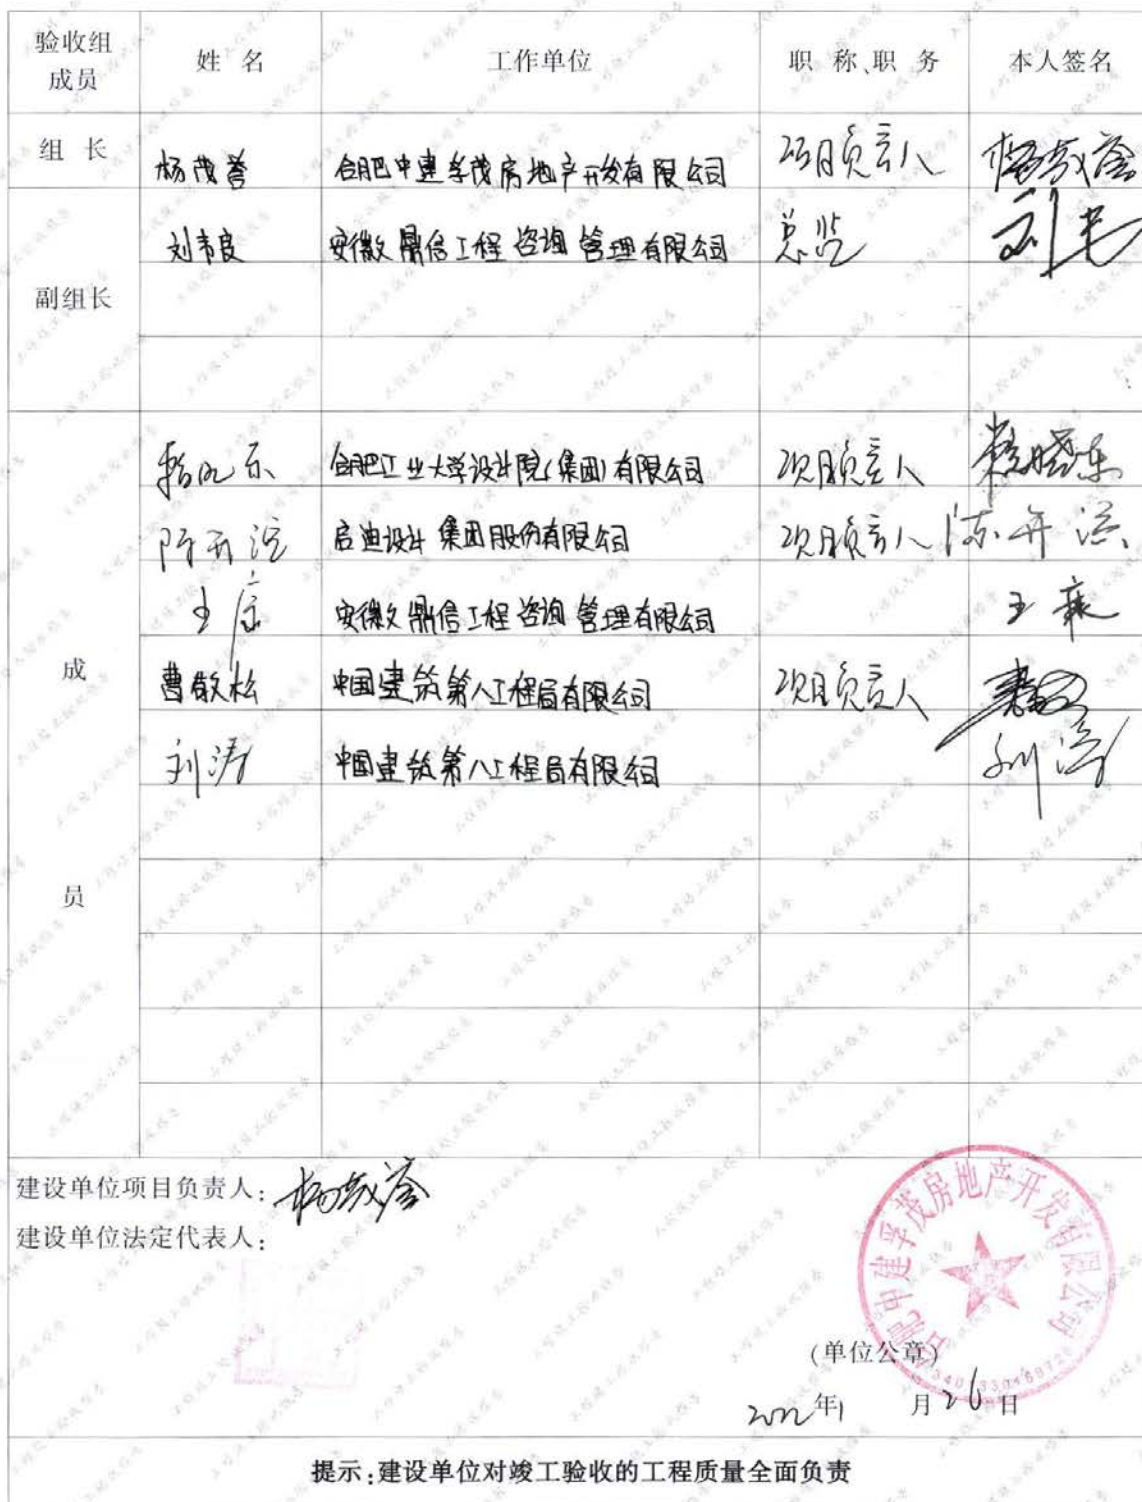 验收组成员 姓 名 工作单位 职 称、职 务 本人签名
组 长 杨茂誉 合肥中建孚茂房地产开发有限公司 项目负责人 杨茂誉
刘韦良 安徽鼎信工程咨询管理有限公司 总监
副组长
合肥工业大学设计院(集团)有限公司 项目负责人
启迪设计集团股份有限公司 项目负责人
王康 安徽鼎信工程咨询管理有限公司 王康
成 曹敬松 中国建筑第八工程局有限公司 项目负责人
刘涛 中国建筑第八工程局有限公司 刘涛
员
建设单位项目负责人: 杨茂誉
建设单位法定代表人:
合肥中建孚茂房地产开发有限公司
(单位公章)
2022年1月26日
提示:建设单位对竣工验收的工程质量全面负责